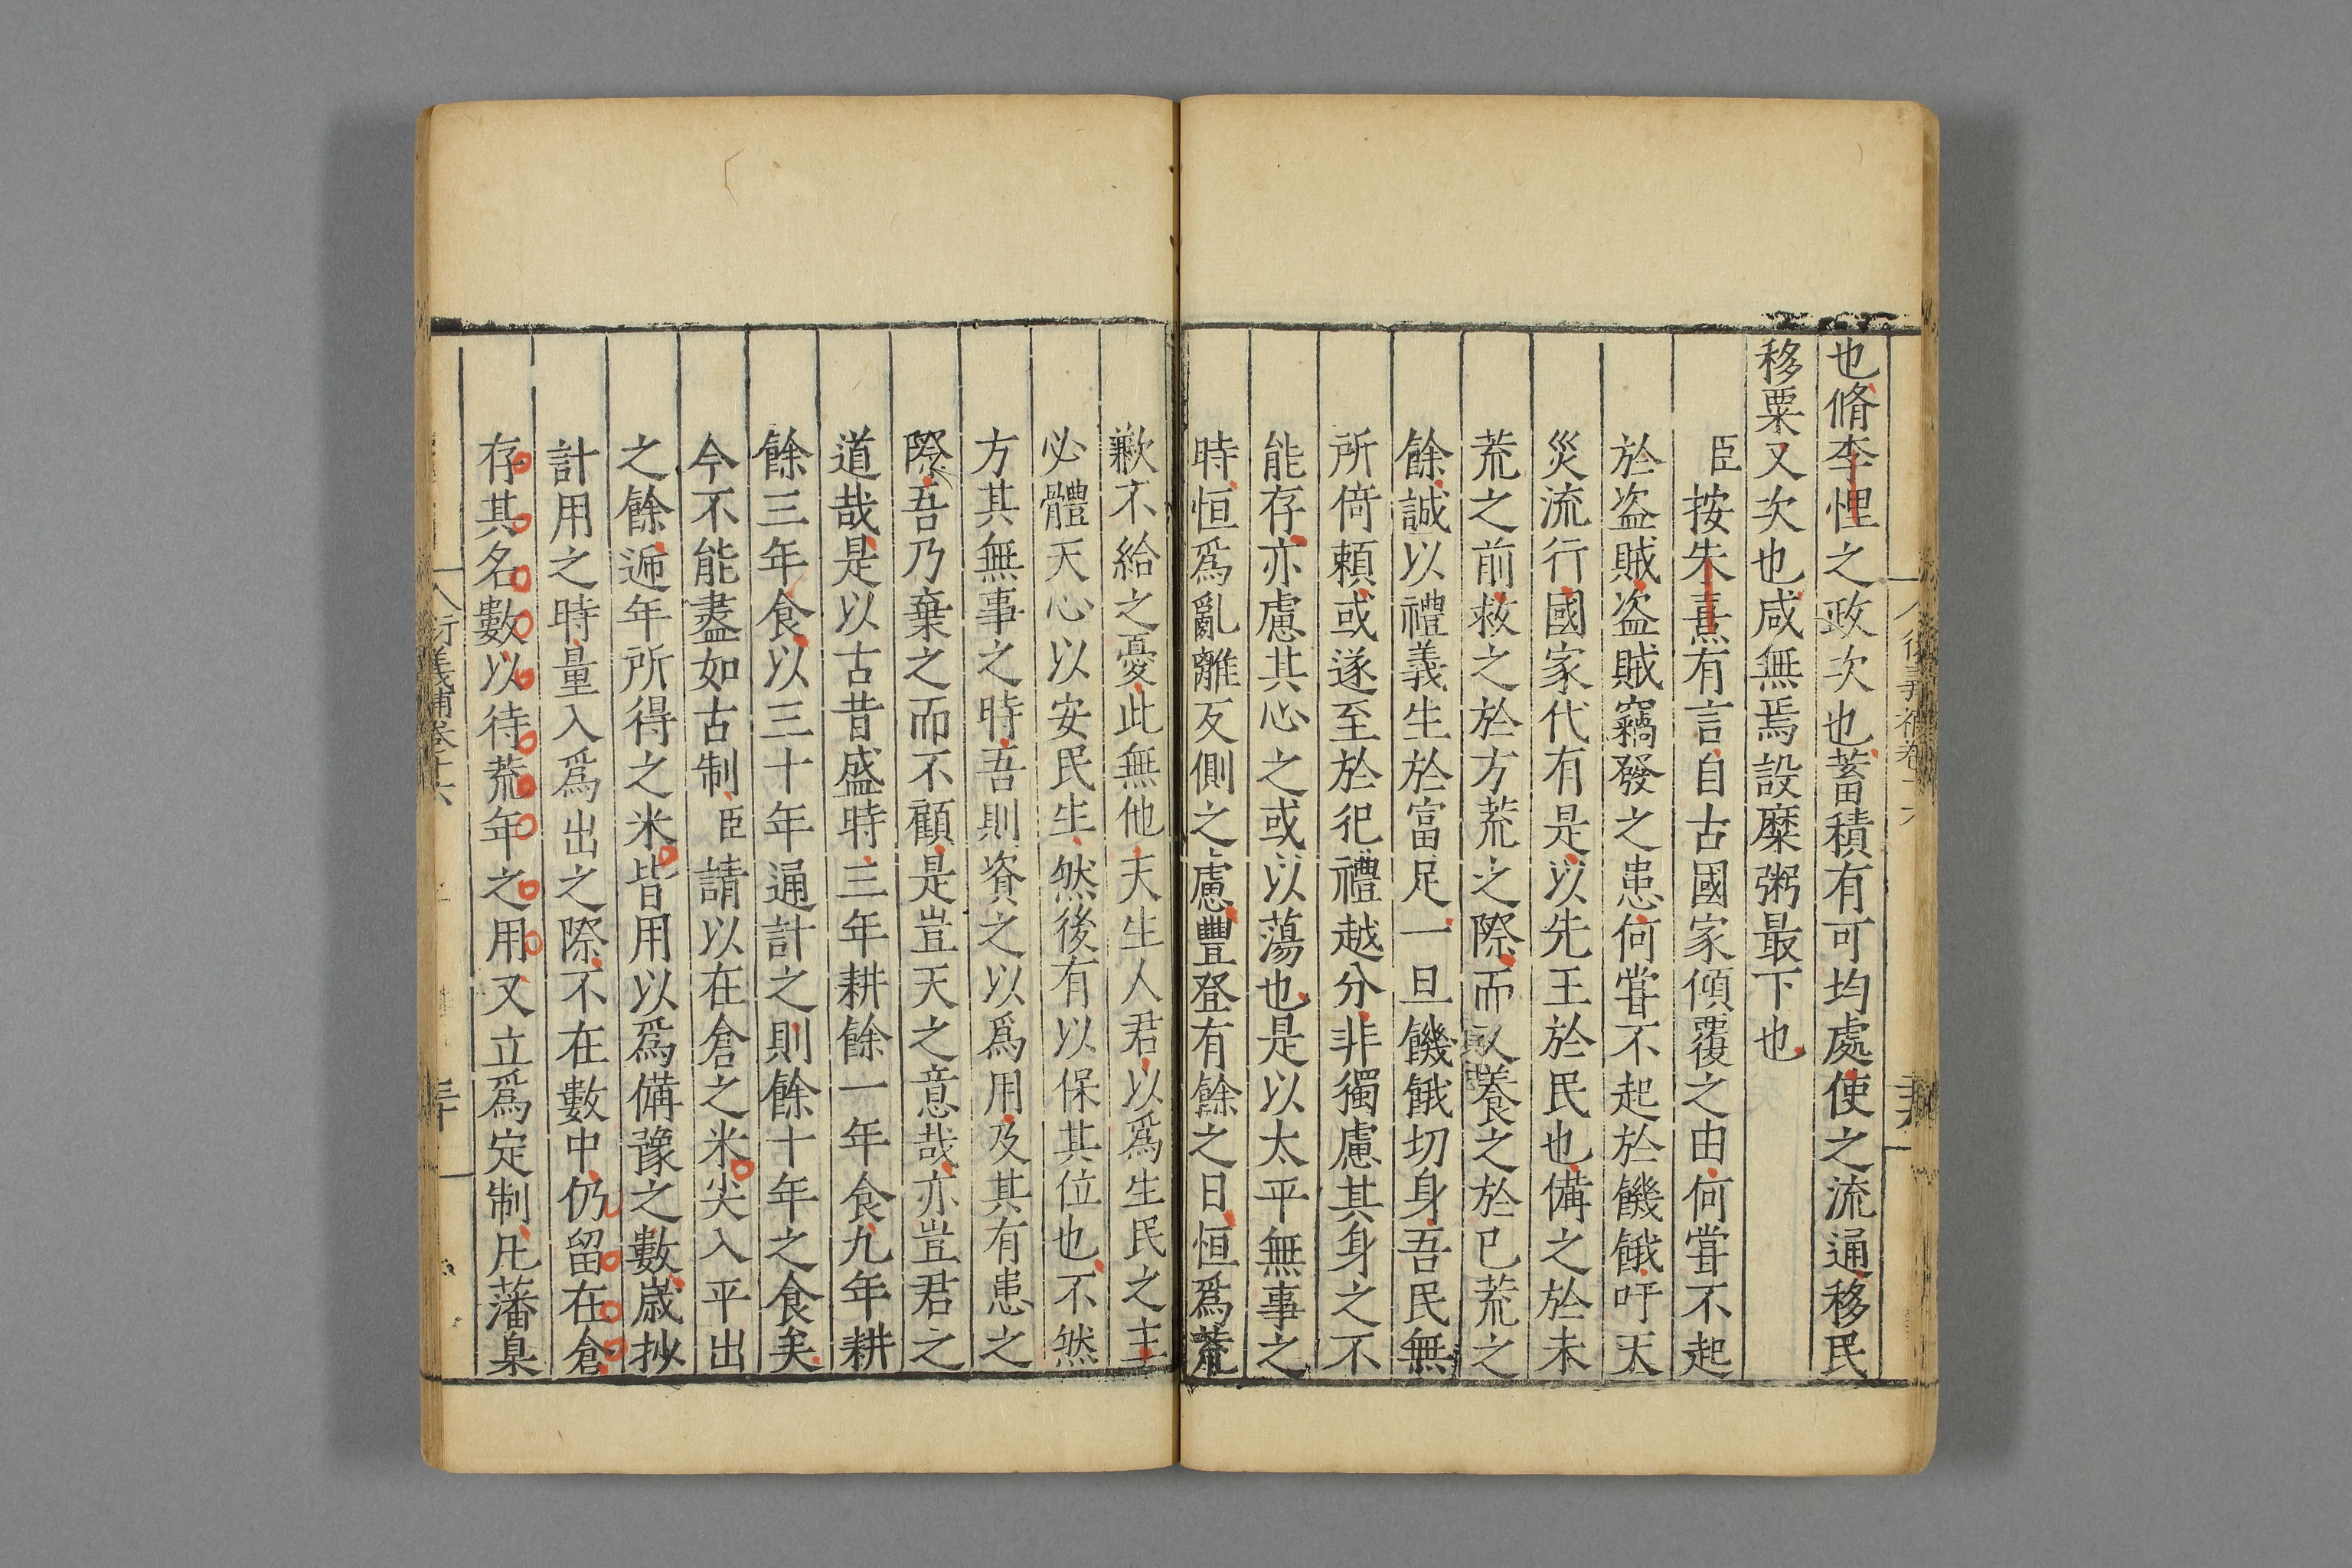 也脩李悝之政次也蓄積有可均處使之流通移民
移粟又次也咸無焉設糜粥最下也
臣按朱熹有言自古國家傾覆之由何嘗不起
於盗賊盗賊竊發之患何嘗不起於饑餓吁天
災流行國家代有是以先王於民也備之於未
荒之前救之於方荒之際而又養之於已荒之
餘誠以禮義生於富足一旦饑餓切身吾民無
所倚頼或遂至於犯禮越分非獨慮其身之不
能存亦慮其心之或以蕩也是以太平無事之
時恒爲亂離反側之慮豐登有餘之日恒爲荒
歉不給之憂此無他天生人君以爲生民之主
必體天心以安民生然後有以保其位也不然
方其無事之時吾則資之以爲用及其有患之
際吾乃棄之而不顧是豈天之意哉亦豈君之
道哉是以古昔盛時三年耕餘一年食九年耕
餘三年食以三十年通計之則餘十年之食矣
今不能盡如古制臣請以在倉之米尖入平出
之餘逓年所得之米皆用以爲備豫之數嵗抄
計用之時量入爲出之際不在數中仍留在倉
存其名數以待荒年之用又立爲定制凡藩臬
衍義補卷十六
三十